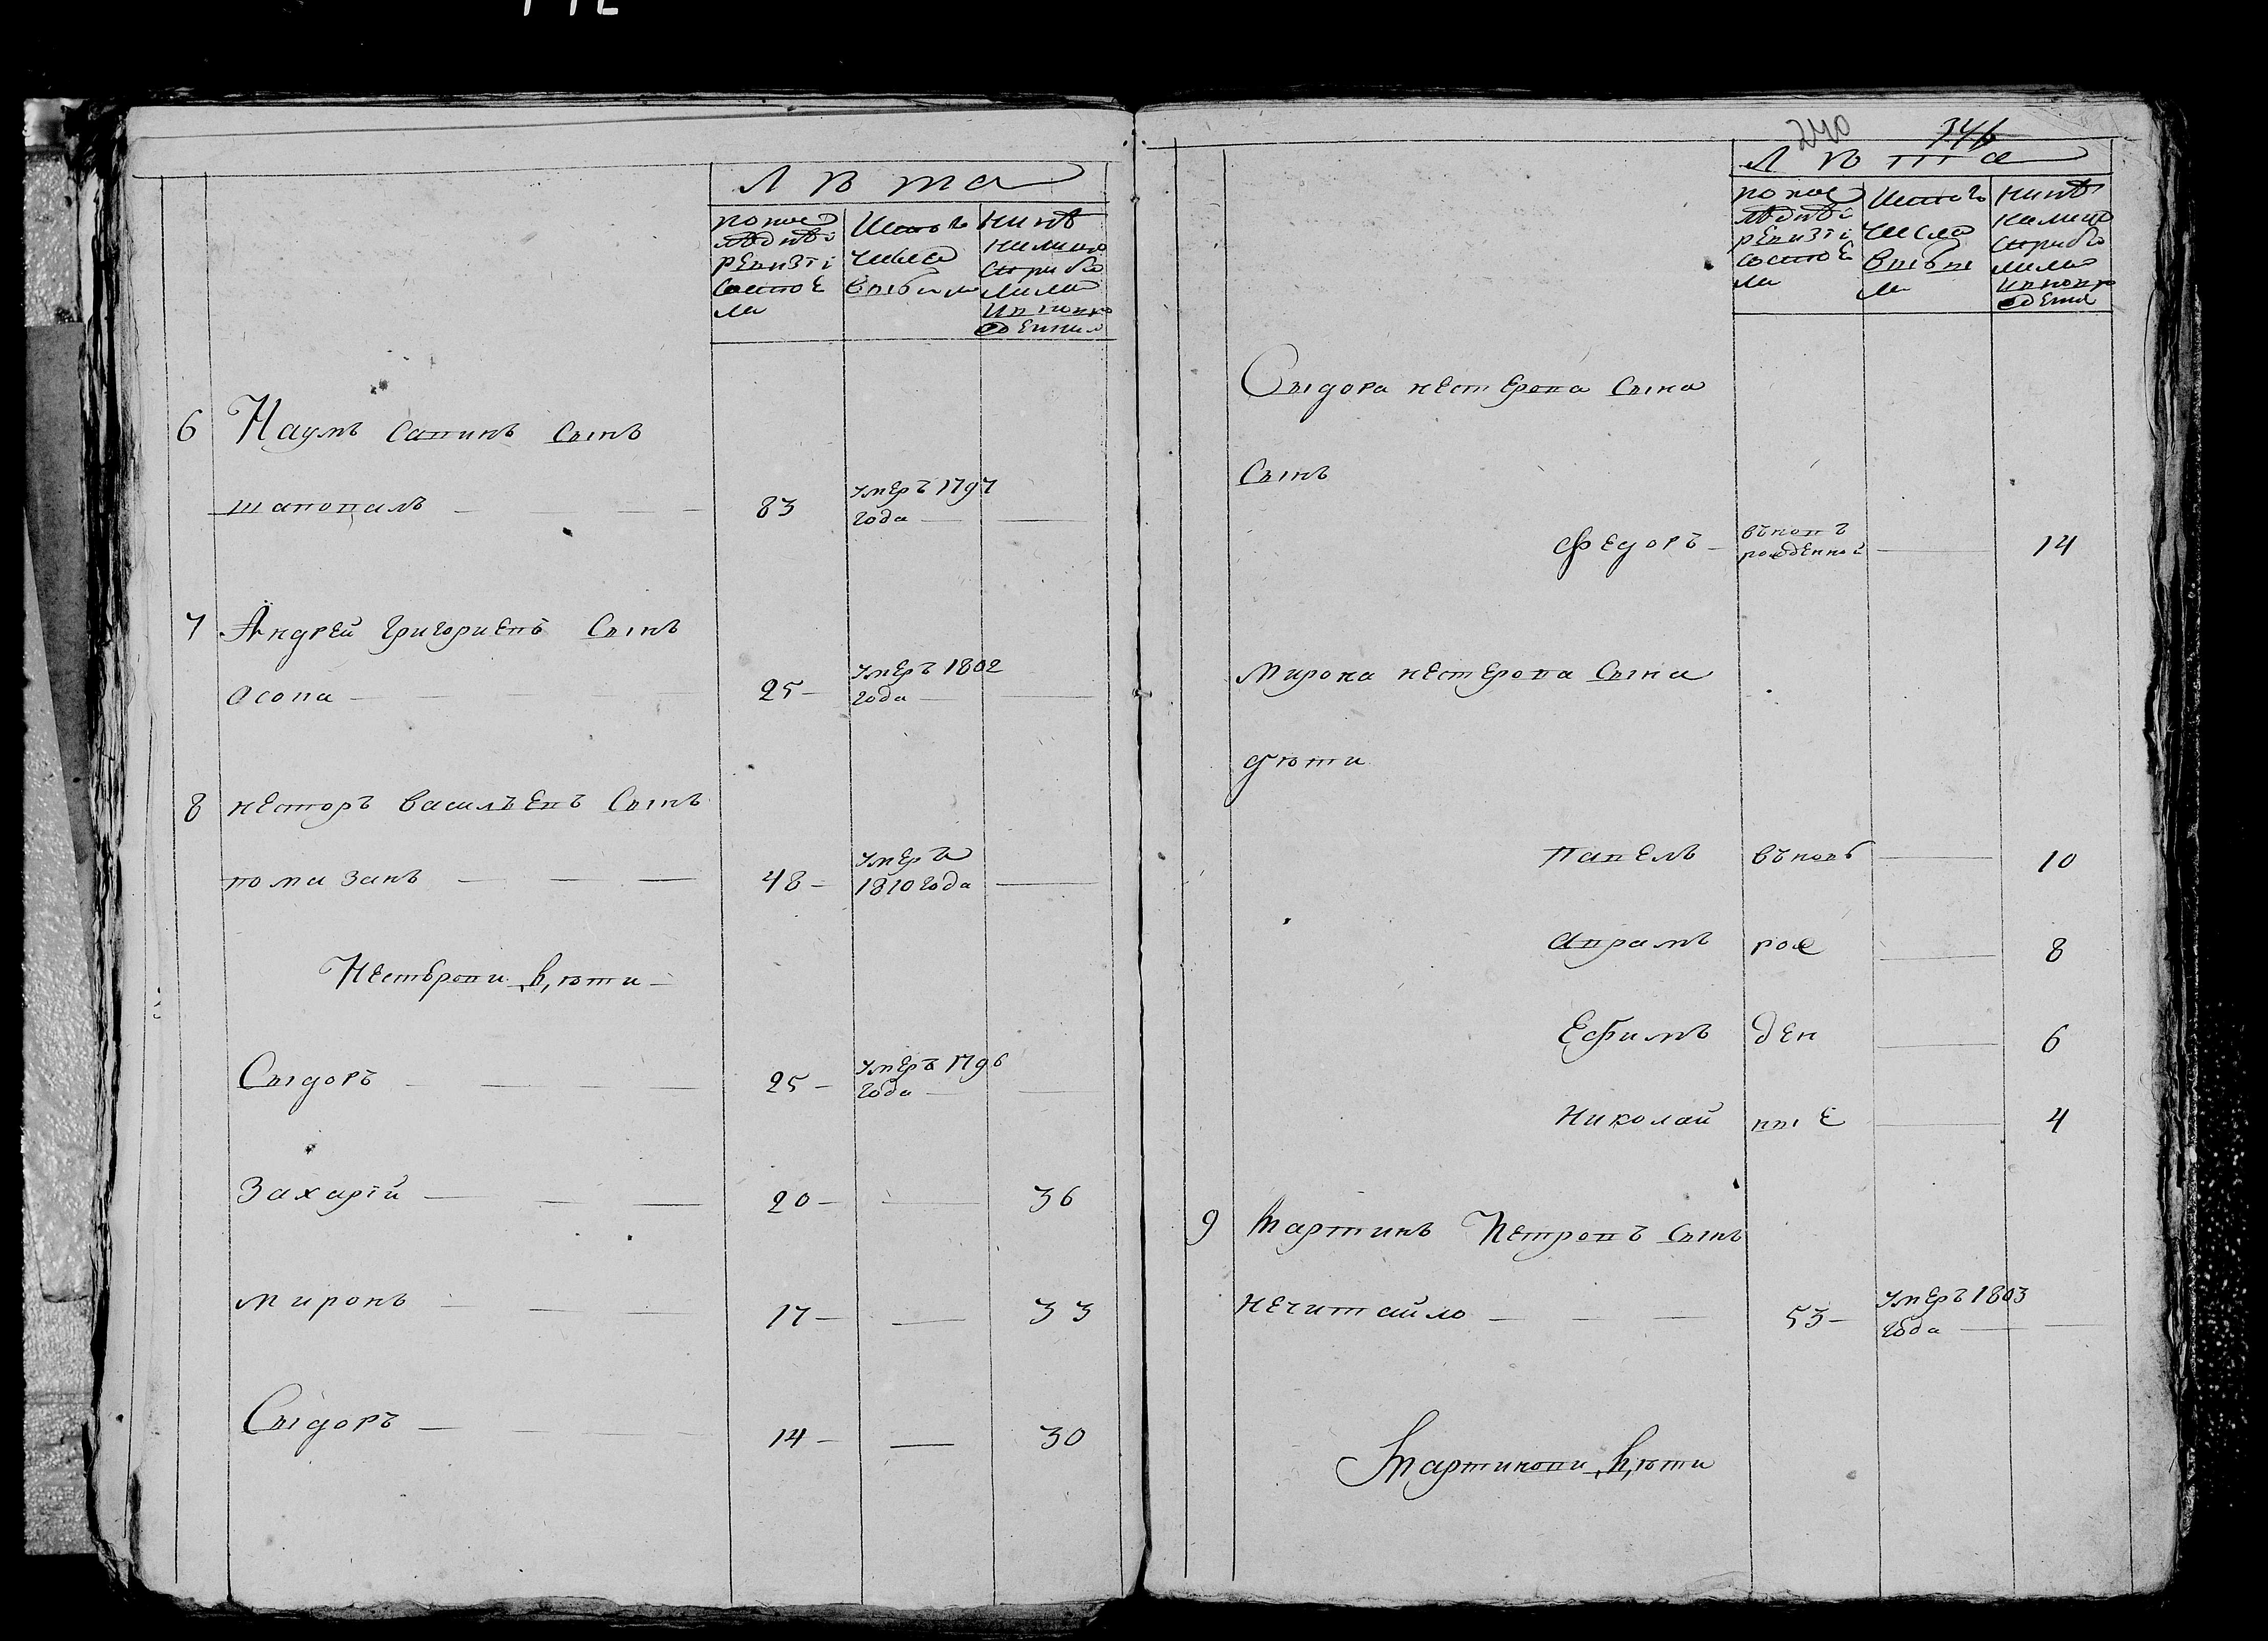 Лѣта
по послѣдней ревизіи состояло
Изъ того числа выбыло
Нынѣ на лицо
6 Наумъ Савинъ Сынъ
шаповалъ 83 умеръ 1797 года
7 Андрей Григориевъ Сынъ
Осопа 25 умеръ 1802 года
8 Несторъ Васильевъ Сынъ
помазанъ 48 умеръ 1810 года
Нестерови дѣти
Сыдоръ 25 умеръ 1796 года
Захарій 20 36
миронъ 17 33
Сыдоръ 14 30
240 346
Лѣта
по послѣдней ревизіи состояло
Изъ того числа выбыло
Нынѣ на лицо
Сыдора Нестерова Сына
Сынъ
Федоръ въновъ рожденной 14
Мирона Нестерова Сына
дѣти
Павелъ въновь 10
Аврамъ рож 8
Ефимъ ден 6
Николай ные 4
9 Мартинъ Петровъ Сынъ
Нечитайло 53 умеръ 1803 года
Мартинови дѣти